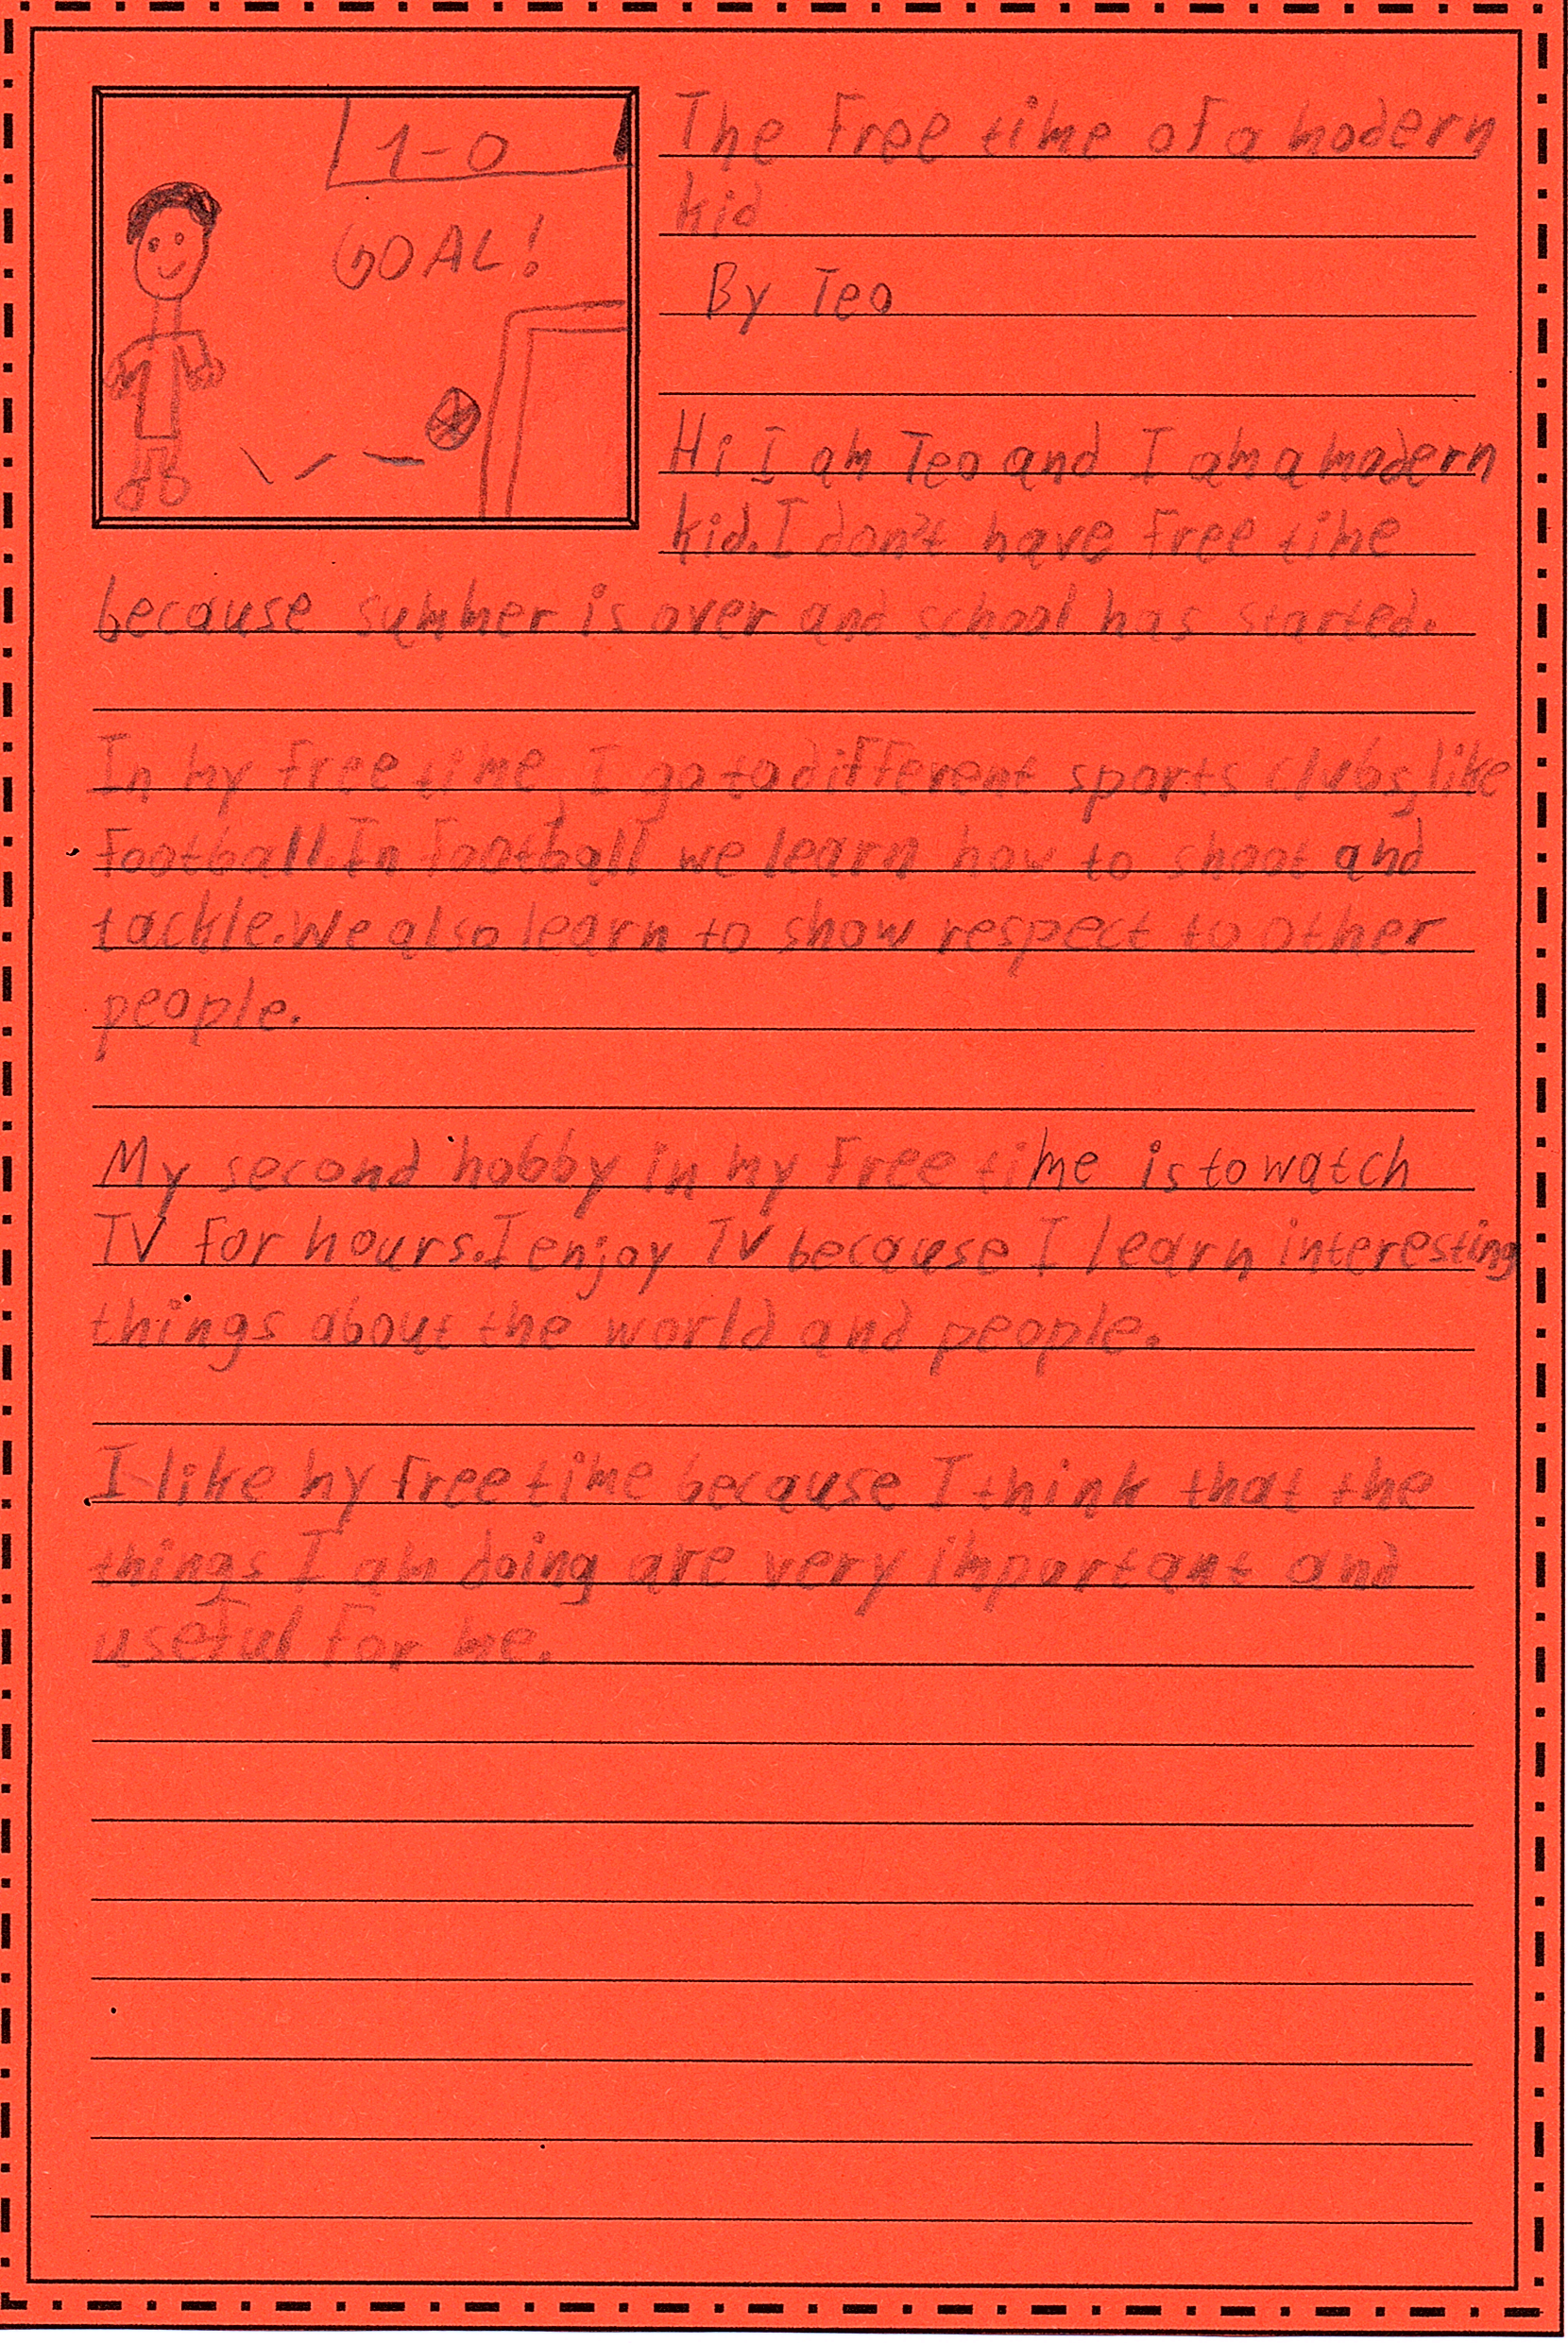 1-0
GOAL!
The free time of a modern
kid
By Teo
Hi I am Teo and I am a modern
kid. I don't have free time
because summer is over and school has started.
In my free time, I go to different sports clubs, like
football. In football we learn how to shoot and
tackle. We also learn to show respect to other
people.
My second hobby in my free time is to watch
TV for hours. I enjoy TV because I learn interesting
things about the world and people.
I like my free time because I think that the
things I am doing are very important and
useful for me.